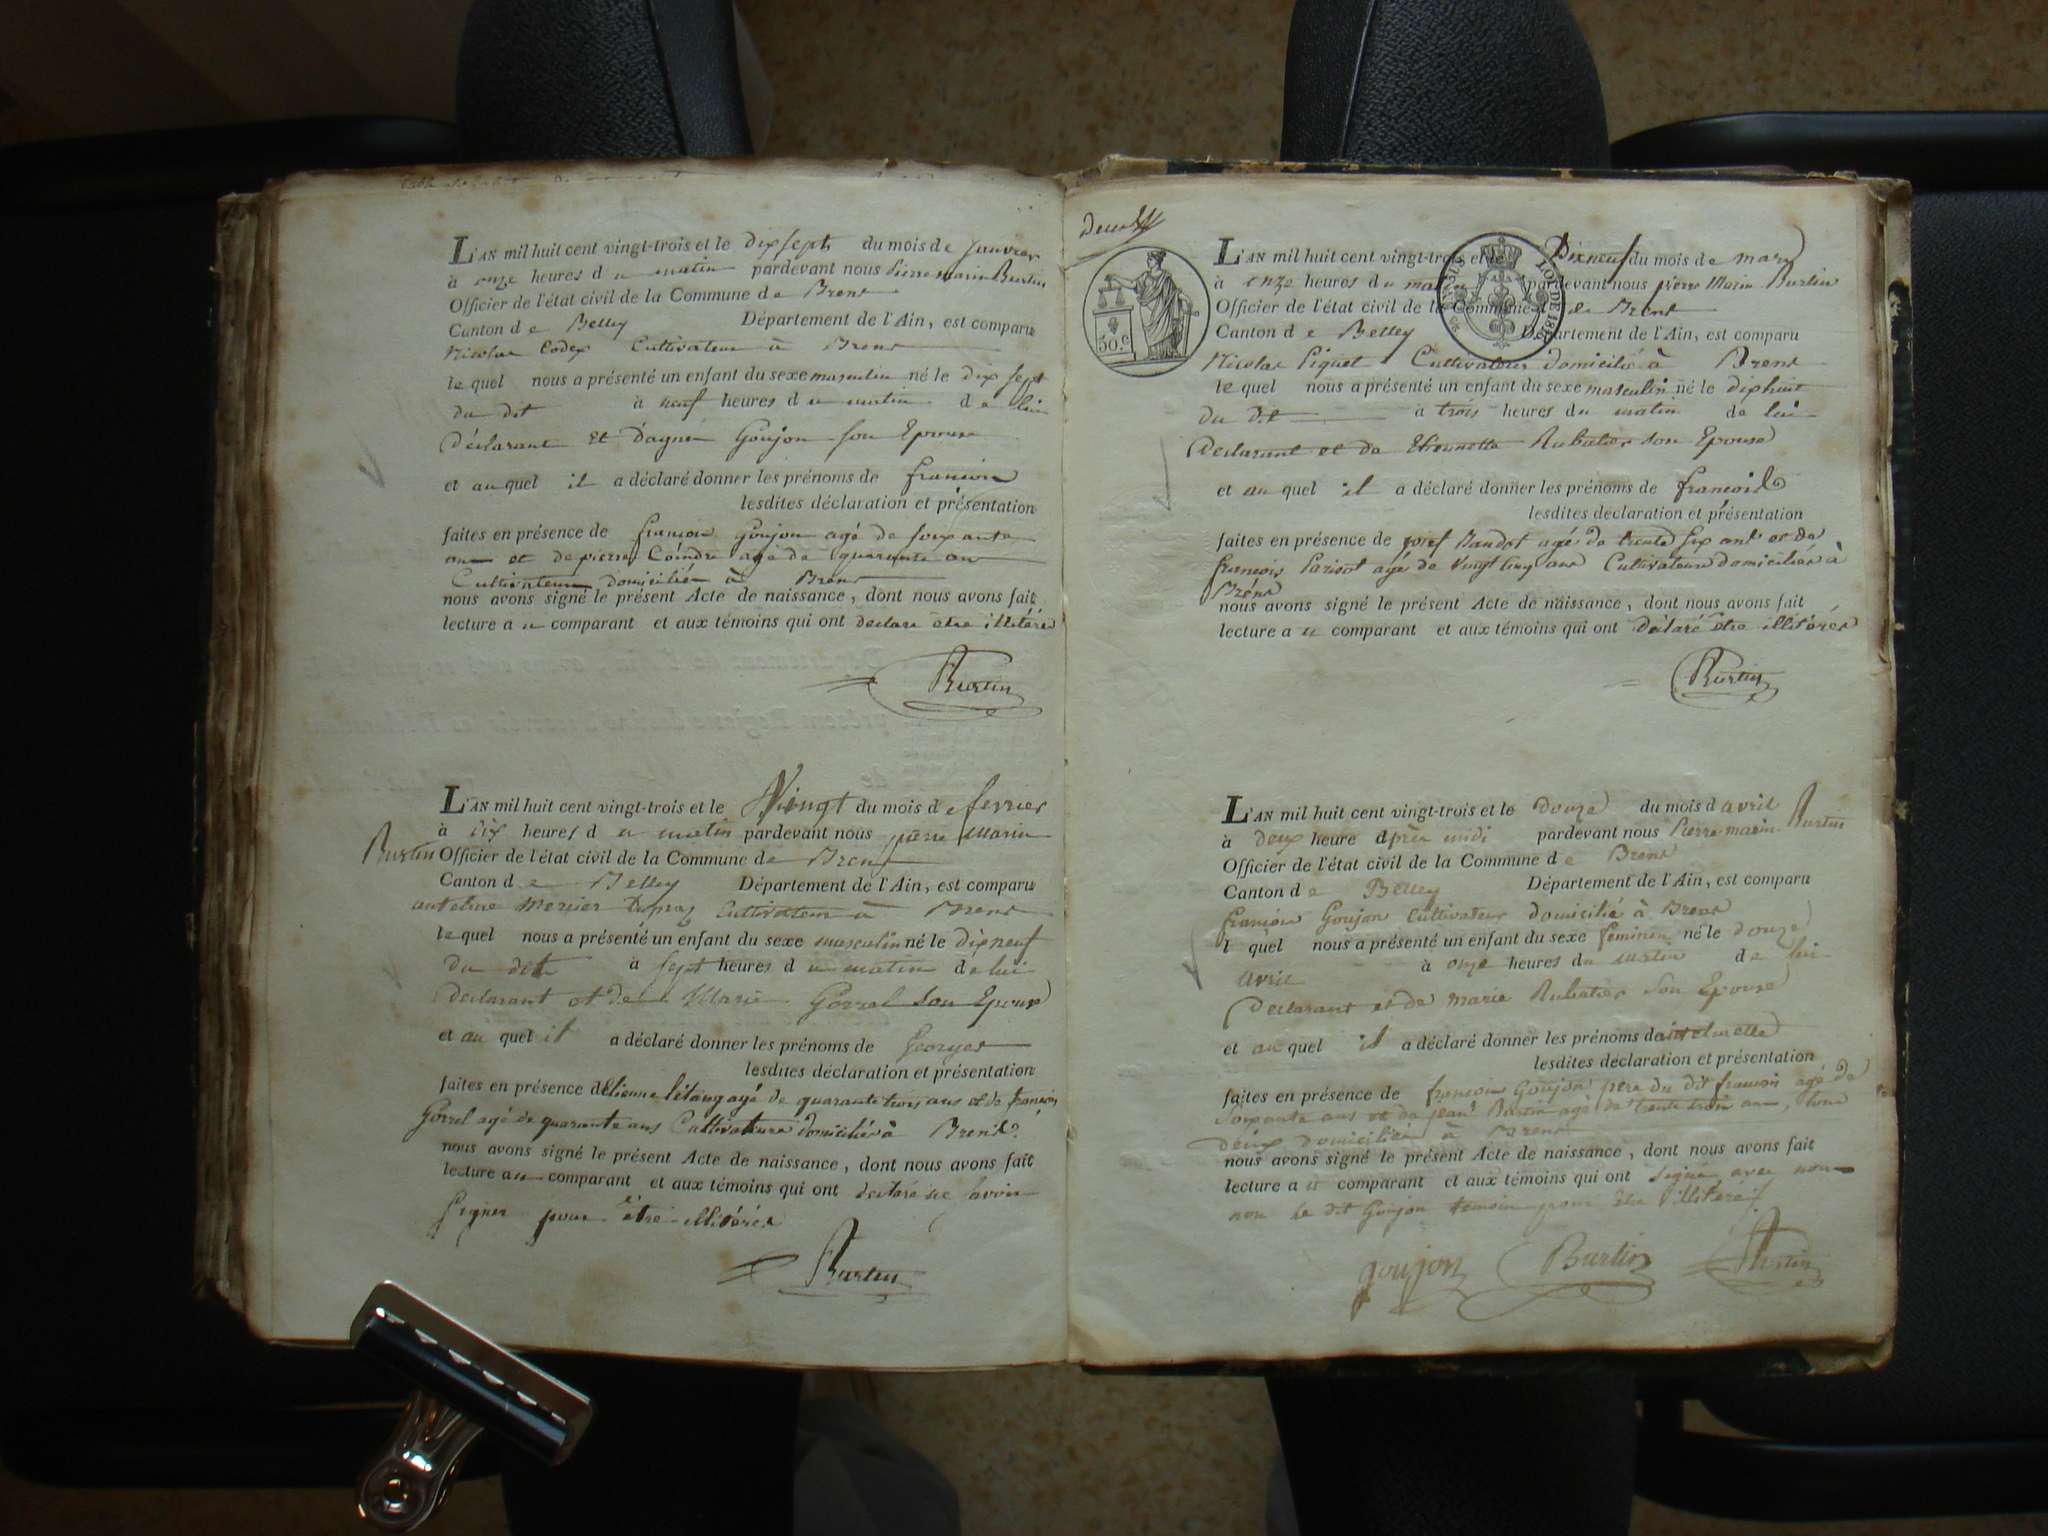 L'AN mil huit cent vingt-trois et le dix sept du mois de janvier
à onze heures du matin pardevant nous Pierre Marin Burtin
Officier de l'état civil de la Commune de Brens
Canton de Belley Département de l'Ain, est comparu
Nicolas Codex Cultivateur à Brens
lequel nous a présenté un enfant du sexe masculin né le dix sept
du dit à neuf heures du matin de lui
Déclarant et d'agnès Goujon son Epouse
et auquel il a déclaré donner les prénoms de françois
lesdites déclaration et présentation
faites en présence de françois Goujon agé de soixante
ans et de pierre Coindre agé de quarante ans
Cultivateurs domiciliés à Brens
nous avons signé le présent Acte de naissance, dont nous avons fait
lecture au comparant et aux témoins qui ont déclaré être illitérés
Burtin
L'AN mil huit cent vingt-trois et le Vingt du mois de fevrier
à dix heures du matin pardevant nous pierre Marin
Burtin Officier de l'état civil de la Commune de Brens
Canton de Belley Département de l'Ain, est comparu
antelme Mercier Cultivateur à Brens
lequel nous a présenté un enfant du sexe masculin né le dix neuf
du dit à sept heures du matin de lui
Declarant et de Marie Gorrel son Epouse
et auquel il a déclaré donner les prénoms de Georges
lesdites déclaration et présentation
faites en présence d'Etienne agé de quarante trois ans et de françois
Gorrel agé de quarante ans Cultivateurs domiciliés à Brens
nous avons signé le présent Acte de naissance, dont nous avons fait
lecture au comparant et aux témoins qui ont déclaré ne savoir
signer pour être illitérés
Burtin
50.c
LOI DE
L'AN mil huit cent vingt-trois et le Dix neuf du mois de mars
à onze heures du matin pardevant nous pierre Marin Burtin
Officier de l'état civil de la Commune de Brens
Canton de Belley Département de l'Ain, est comparu
Nicolas Piquet Cultivateur domicilié à Brens
lequel nous a présenté un enfant du sexe masculin né le dix huit
du dit à trois heures du matin de lui
Declarant et de Etiennette Rubatier son Epouse
et auquel il a déclaré donner les prénoms de françois
lesdites déclaration et présentation
faites en présence de josef Baudot agé de trente six ans et de
françois Parisot agé de vingt cinq ans Cultivateurs domiciliés à
Brens
nous avons signé le présent Acte de naissance, dont nous avons fait
lecture au comparant et aux témoins qui ont déclaré être illitérés
Burtin
L'AN mil huit cent vingt-trois et le douze du mois d'avril
à deux heure après midi pardevant nous Pierre marin Burtin
Officier de l'état civil de la Commune de Brens
Canton de Belley Département de l'Ain, est comparu
françois Goujon Cultivateur domicilié à Brens
lequel nous a présenté un enfant du sexe féminin né le douze
avril à onze heures du matin de lui
Declarant et de marie Rubatier son Epouse
et auquel il a déclaré donner les prénoms d'antelmette
lesdites déclaration et présentation
faites en présence de françois Goujon père du dit françois agé de
soixante ans et de jean Burtin agé de trente trois ans, tous
deux domiciliés à Brens
nous avons signé le présent Acte de naissance, dont nous avons fait
lecture au comparant et aux témoins qui ont signé avec nous
non le dit Goujon témoin pour être illitéré
goujon Burtin Burtin